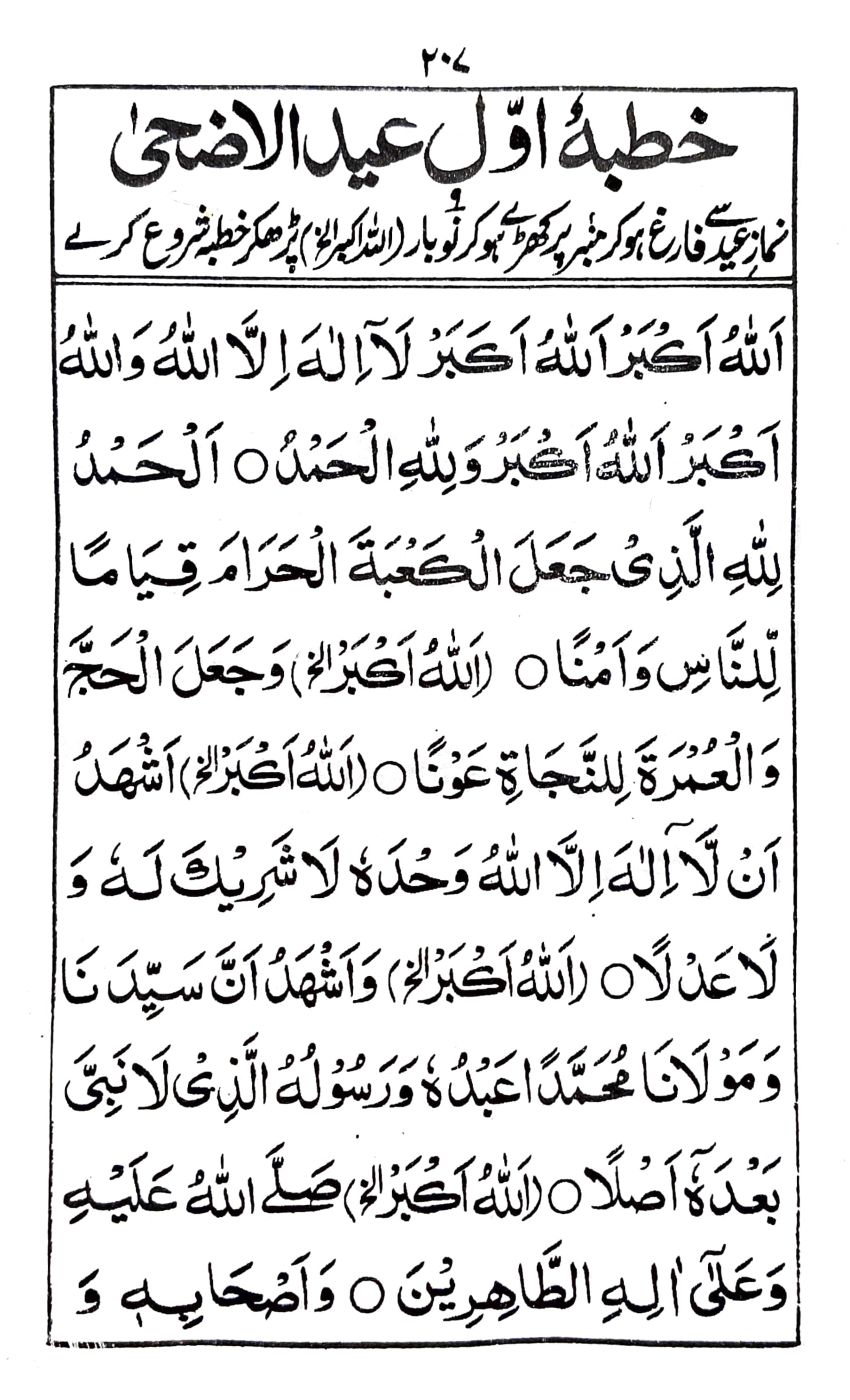 ۲۰۷
خطبۂ اوّل عید الاضحیٰ
نمازِ عید سے فارغ ہو کر منبر پر کھڑے ہو کر نو ۹ بار (اللہ اکبر الخ) پڑھ کر خطبہ شروع کرے
اَللّٰهُ اَكْبَرُ اَللّٰهُ اَكَبَرُ لَآ اِلٰهَ اِلَّا اللّٰهُ وَاللّٰهُ
اَكْبَرُ اَللّٰهُ اَكْبَرُ وَلِلّٰهِ الْحَمْدُ ○ اَلْحَمْدُ
لِلّٰهِ الَّذِىْ جَعَلَ الْكَعْبَةَ الْحَرَامَ قِيَامًا
لِّلنَّاسِ وَاَمْنًا ○ (اَللّٰهُ اَكْبَرُ الخ) وَجَعَلَ الْحَجَّ
وَالْعُمْرَةَ لِلنَّجَاةِ عَوْنًا ○ (اَللّٰهُ اَكْبَرُ الخ) اَشْهَدُ
اَنْ لَّآ اِلٰهَ اِلَّا اللّٰهُ وَحْدَهٗ لَا شَرِيْكَ لَهٗ وَ
لَا عَدْلًا ○ (اَللّٰهُ اَكْبَرُ الخ) وَاَشْهَدُ اَنَّ سَيِّدَنَا
وَمَوْلَانَا مُحَمَّدًا عَبْدُهٗ وَرَسُوْلُهُ الَّذِىْ لَا نَبِىَّ
بَعْدَهٗٓ اَصْلًا ○ (اَللّٰهُ اَكْبَرُ الخ) صَلَّے اللّٰهُ عَلَيْهِ
وَعَلٰٓى اٰلِهِ الطَّاهِرِيْنَ ○ وَاَصْحَابِهٖ وَ